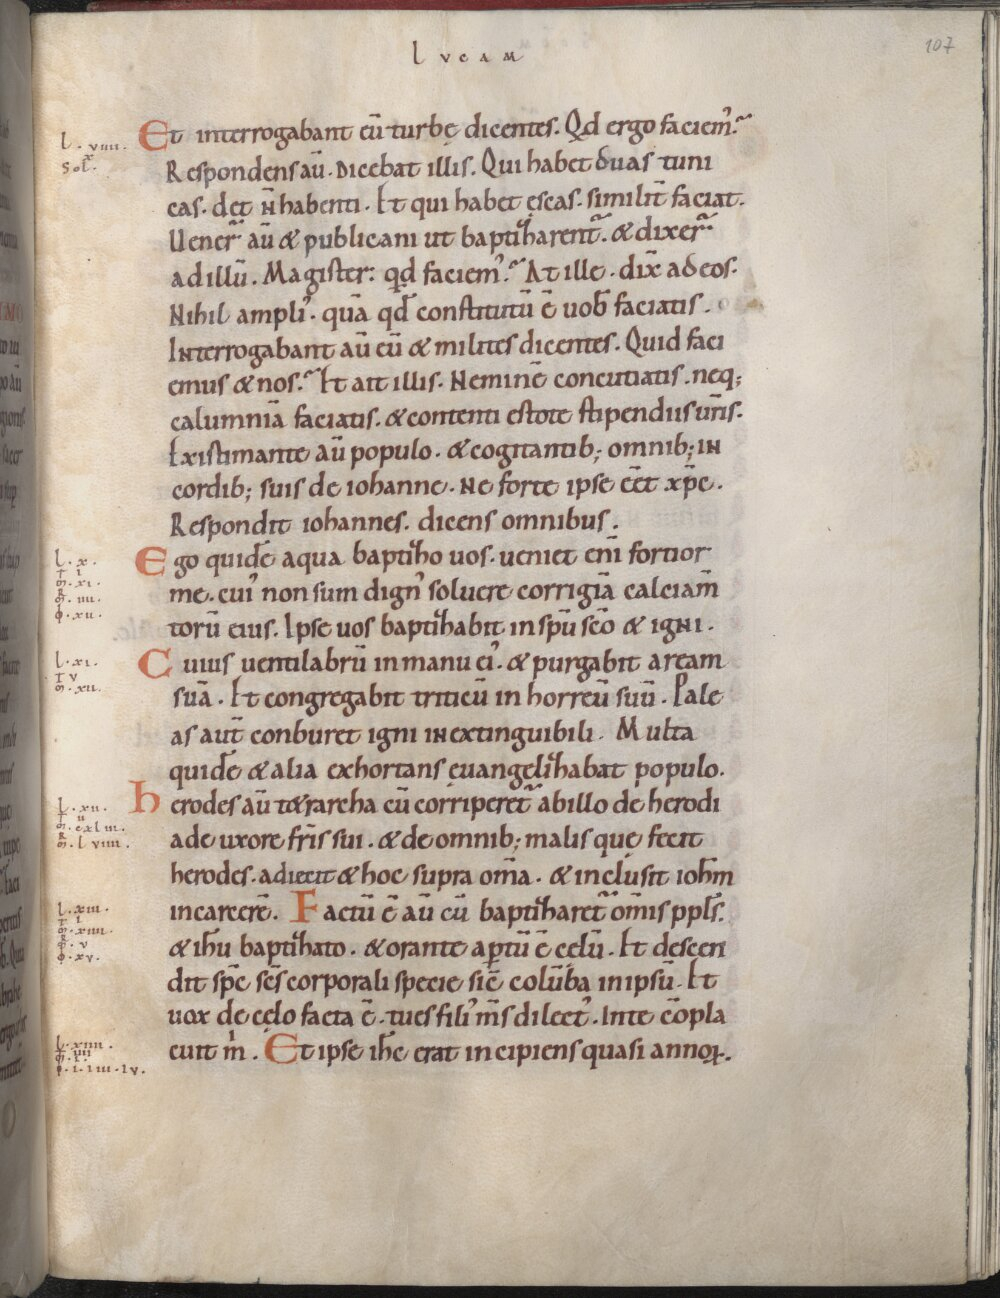 LUCAM
107
L. viiii.
Solꝰ.
Et interrogabant eū turbę dicentes. Qd ergo faciemꝰ?
Respondens aū. Dicebat illis. Qui habet duas tuni
cas. det n̄ habenti. Et qui habet ęscas. similit̄ faciat.
Uener̄ aū & publicani ut baptiharent̄. & dixer̄
ad illū. Magister: qd faciemꝰ? At ille. dix̄ ad eos.
Nihil ampliꝰ. quā qd̄ constitutū ē uob̄ faciatis.
Interrogabant aū eū & milites dicentes. Quid faci
emus & nos? Et ait illis. Neminē concutiatis. neq;
calumniā faciatis. & contenti estote stipendiis ur̄is.
Existimante aū populo. & cogitantib; omnib; in
cordib; suis de iohanne. Ne forte ipse eēt xp̄c.
Respondit iohannes. dicens omnibus.
L. x.
T i
m̄. xi.
R̄. iiii.
ꝉo. xii.
Ego quidē aqua baptiho uos. ueniet eni̅ fortior
me. cuiꝰ non sum dignꝰ soluere corrigiā calciam̄
torū eius. Ipse uos baptihabit in spū scō & igni.
L. xi.
T v
m̄. xii.
Cuius uentilabrū in manu eiꝰ. & purgabit aream
suā. Et congregabit triticū in horreū suū. Pale
as aut̄ conburet igni inextinguibili. Multa
quidē & alia exhortans euangelihabat populo.
L. xii.
T ii
m̄. cxliii.
R̄. lviiii.
herodes aū tetrarcha cū corriperet̄ ab illo de herodi
ade uxore fr̄is sui. & de omnib; malis que fecit
herodes. adiecit & hoc supra om̄a. & inclusit ioh̄m
in carcere̅. Factū ē aū cū baptiharet̄ om̄is ppl̄s.
L. xiii.
T i
m̄. xiiii.
R̄. v
ꝉo. xv.
& ih̄u baptihato. & orante aptū ē cęlū. Et descen
dit sp̄c sc̄s corporali specie sic̄ colūba in ipsū. Et
uox de cęlo facta ē. tu es filiꝰ m̄s dilectꝰ. In te cōpla
cuit m̄. Et ipse ih̄c erat incipiens quasi annoꝝ.
L. xiiii.